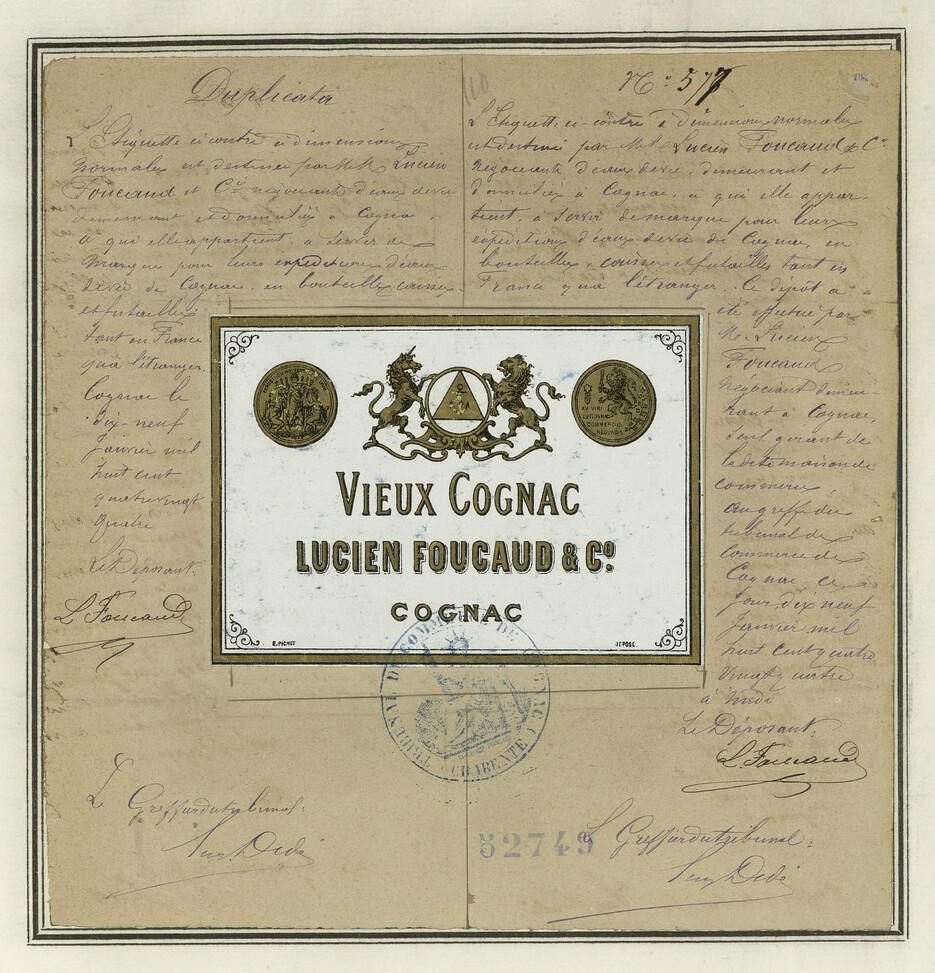 Duplicata
L'Etiquette ci contre à dimensions
normales est destinée par MM Lucien
Foucaud et Cie négociant d'eaux de vie
demeurant et domiciliés à Cognac,
à qui elle appartient, à servir de
marque pour leurs expéditions d'eaux
de vie de Cognac, en bouteilles, caisses
et futailles
tant en France
qu'à l'étranger.
Cognac le
dix-neuf
Janvier mil
huit cent
quatre vingt
quatre
Le Déposant.
L Foucaud
Le Greffier du tribunal:
110
No 577
L'Etiquette ci-contre à dimensions normales
est destiné par MM Lucien Foucaud & Cie
négociants d'eaux de vie, demeurant et
domiciliés à Cognac, à qui elle appar-
tient, à servir de marque pour leurs
expéditions d'eaux de vie de Cognac, en
bouteilles, caisses et futailles tant en
France qu'à l'étranger. Ce dépôt a
été effectué par
Mr Lucien
Foucaud
négociant demeu-
rant à Cognac,
seul gérant de
ladite maison de
commerce,
au greffe du
tribunal de
Commerce de
Cognac, ce
jour dix neuf
Janvier mil
huit cent quatre
vingt quatre
à midi
Le Déposant:
L. Foucaud
Le Greffier du tribunal:
VIEUX COGNAC
LUCIEN FOUCAUD & Co.
COGNAC
E. PICHOT
DÉPOSÉ.
TRIBUNAL DE COMMERCE DE COGNAC (CHARENTE)
52749